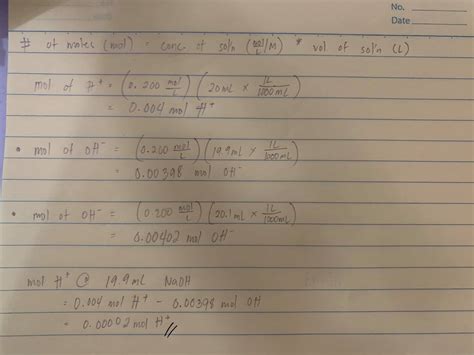 No.
Date
# of moles (mol) = conc. of sol'n (mol/L/M) * vol of sol'n (L)
mol of H+ = (0.200 mol/L) (20 mL × 1L/1000mL)
= 0.004 mol H+
• mol of OH- = (0.200 mol/L) (19.9 mL × 1L/1000mL)
= 0.00398 mol OH-
• mol of OH- = (0.200 mol/L) (20.1 mL × 1L/1000mL)
= 0.00402 mol OH-
mol H+ @ 19.9 mL NaOH
= 0.004 mol H+ - 0.00398 mol OH
= 0.00002 mol H+ //